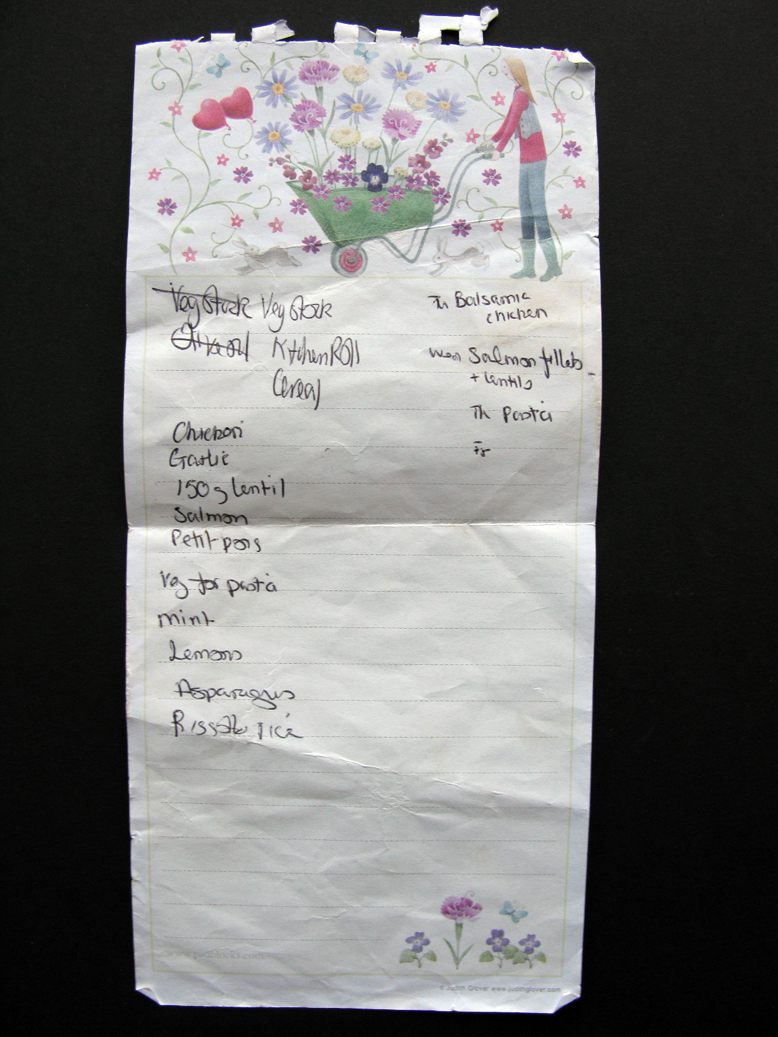 Veg Stock Veg Stock
Olive oil Kitchen Roll
Cereal
Chicken
Garlic
150g lentil
Salmon
Petit pois
Veg for pasta
mint
Lemons
Asparagus
Rissoto rice
Tu Balsamic
chicken
Wed Salmon fillets
+ lentils
Th Pasta
Fr
© Judith Glover www.judithglover.com